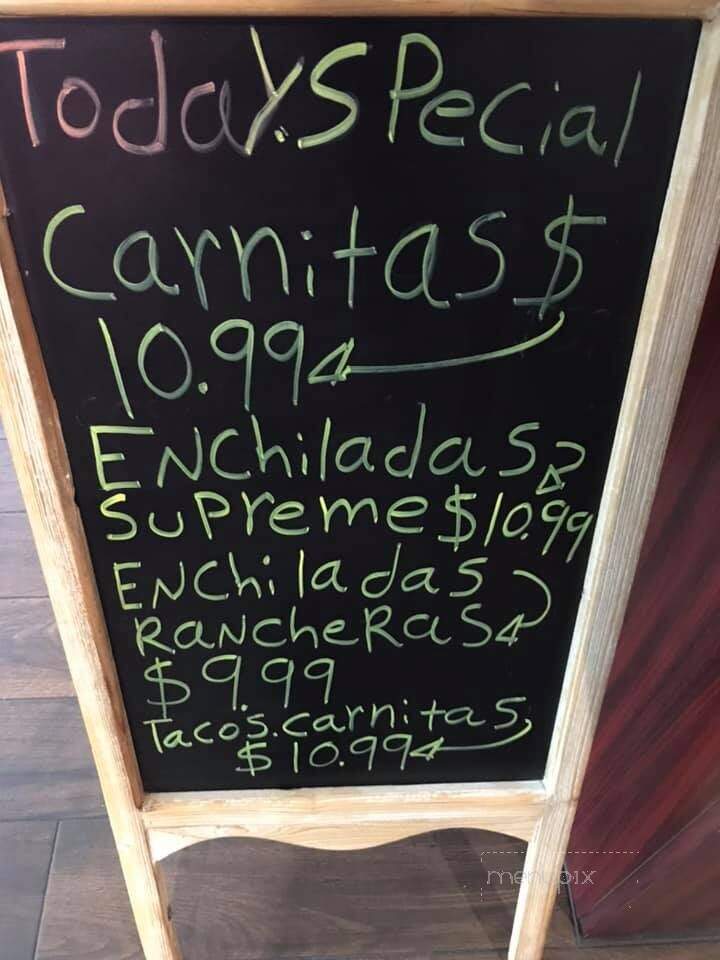 Today.SPecial
Carnitas $
10.99
ENChiladas
SuPreme $10.99
ENChiladas
RaNcheRas
$9.99
Tacos.carnitas
$10.99
menupix